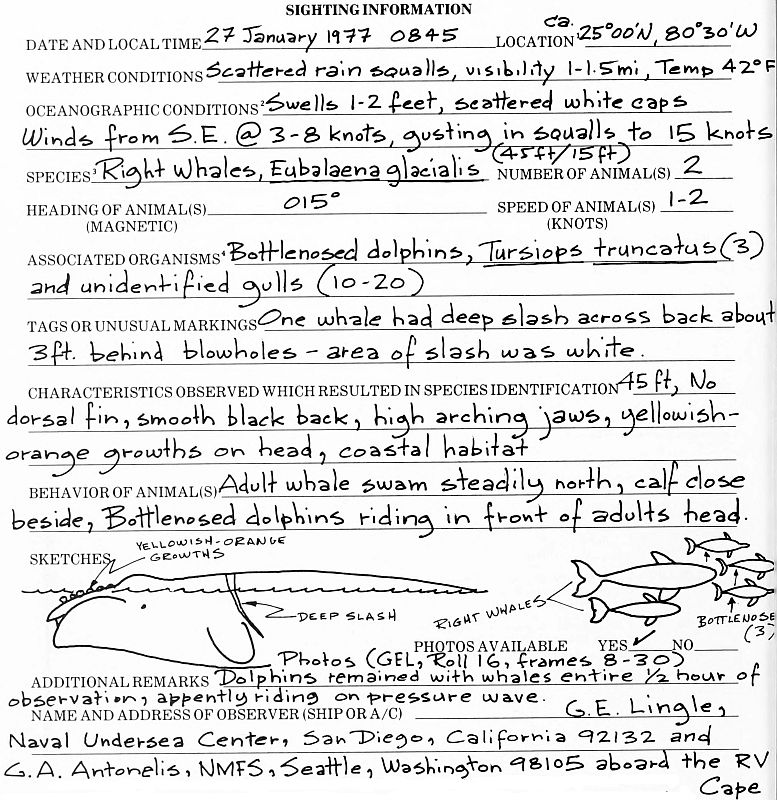 SIGHTING INFORMATION
DATE AND LOCAL TIME 27 January 1977 0845 LOCATION¹ ca. 25°00'N, 80°30'W
WEATHER CONDITIONS Scattered rain squalls, visibility 1-1.5mi, Temp 42°F
OCEANOGRAPHIC CONDITIONS² Swells 1-2 feet, scattered white caps
Winds from S.E. @ 3-8 knots, gusting in squalls to 15 knots
(45ft/15ft)
SPECIES³ Right Whales, Eubalaena glacialis NUMBER OF ANIMAL(S) 2
HEADING OF ANIMAL(S) 015° SPEED OF ANIMAL(S) 1-2
(MAGNETIC) (KNOTS)
ASSOCIATED ORGANISMS⁴ Bottlenosed dolphins, Tursiops truncatus (3)
and unidentified gulls (10-20)
TAGS OR UNUSUAL MARKINGS One whale had deep slash across back about
3ft. behind blowholes - area of slash was white.
CHARACTERISTICS OBSERVED WHICH RESULTED IN SPECIES IDENTIFICATION 45 ft, No
dorsal fin, smooth black back, high arching jaws, yellowish-
orange growths on head, coastal habitat
BEHAVIOR OF ANIMAL(S) Adult whale swam steadily north, calf close
beside, Bottlenosed dolphins riding in front of adults head.
SKETCHES YELLOWISH-ORANGE
GROWTHS
DEEP SLASH
RIGHT WHALES
BOTTLENOSE
(3)
PHOTOS AVAILABLE YES ✓ NO
Photos (GEL, Roll 16, frames 8-30)
ADDITIONAL REMARKS Dolphins remained with whales entire ½ hour of
observation, appently riding on pressure wave.
NAME AND ADDRESS OF OBSERVER (SHIP OR A/C) G.E. Lingle,
Naval Undersea Center, San Diego, California 92132 and
G.A. Antonelis, NMFS, Seattle, Washington 98105 aboard the RV
Cape